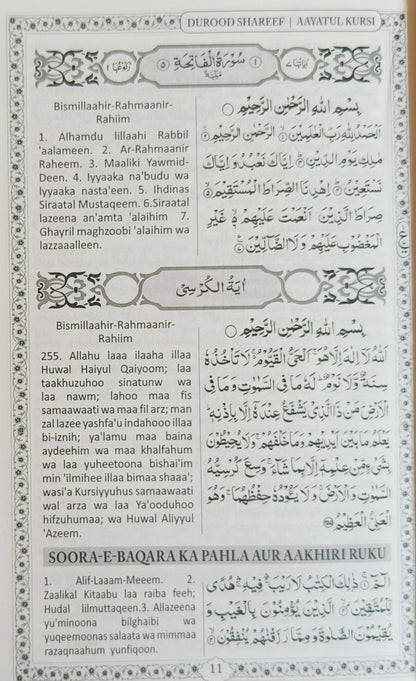 DUROOD SHAREEF | AAYATUL KURSI
سُوْرَةُ الْفَاتِحَةِ
Bismillaahir-Rahmaanir-
Rahiim
1. Alhamdu lillaahi Rabbil
'aalameen. 2. Ar-Rahmaanir
Raheem. 3. Maaliki Yawmid-
Deen. 4. Iyyaaka na'budu wa
Iyyaaka nasta'een. 5. Ihdinas
Siraatal Mustaqeem. 6.Siraatal
lazeena an'amta 'alaihim 7.
Ghayril maghzoobi 'alaihim wa
lazzaaalleen.
بِسْمِ اللهِ الرَّحْمٰنِ الرَّحِيْمِ
اَلْحَمْدُ لِلّٰهِ رَبِّ الْعٰلَمِيْنَ الرَّحْمٰنِ الرَّحِيْمِ
مٰلِكِ يَوْمِ الدِّيْنِ اِيَّاكَ نَعْبُدُ وَاِيَّاكَ
نَسْتَعِيْنُ اِهْدِنَا الصِّرَاطَ الْمُسْتَقِيْمَ
صِرَاطَ الَّذِيْنَ اَنْعَمْتَ عَلَيْهِمْ غَيْرِ
الْمَغْضُوْبِ عَلَيْهِمْ وَلَا الضَّآلِّيْنَ
اٰيَةُ الْكُرْسِيْ
Bismillaahir-Rahmaanir-
Rahiim
255. Allahu laaa ilaaha illaa
Huwal Haiyul Qaiyoom; laa
taakhuzuhoo sinatunw wa
laa nawm; lahoo maa fis
samaawaati wa maa fil arz; man
zal lazee yashfa'u indahooo illaa
bi-iznih; ya'lamu maa baina
aydeehim wa maa khalfahum
wa laa yuheetoona bishai'im
min 'ilmihee illaa bimaa shaaa';
wasi'a Kursiyyuhus samaawaati
wal arza wa laa Ya'ooduhoo
hifzuhumaa; wa Huwal Aliyyul
'Azeem.
بِسْمِ اللهِ الرَّحْمٰنِ الرَّحِيْمِ
اَللهُ لَآ اِلٰهَ اِلَّا هُوَ اَلْحَيُّ الْقَيُّوْمُ لَا تَاْخُذُهٗ
سِنَةٌ وَّلَا نَوْمٌ لَهٗ مَا فِى السَّمٰوٰتِ وَمَا فِى
الْاَرْضِ مَنْ ذَا الَّذِيْ يَشْفَعُ عِنْدَهٗٓ اِلَّا بِاِذْنِهٖ
يَعْلَمُ مَا بَيْنَ اَيْدِيْهِمْ وَمَا خَلْفَهُمْ وَلَا يُحِيْطُوْنَ
بِشَيْءٍ مِّنْ عِلْمِهٖٓ اِلَّا بِمَا شَآءَ وَسِعَ كُرْسِيُّهُ
السَّمٰوٰتِ وَالْاَرْضَ وَلَا يَـُٔوْدُهٗ حِفْظُهُمَا وَهُوَ
الْعَلِيُّ الْعَظِيْمُ
SOORA-E-BAQARA KA PAHLA AUR AAKHIRI RUKU
1. Alif-Laaam-Meeem. 2.
Zaalikal Kitaabu laa raiba feeh;
Hudal lilmuttaqeen. 3. Allazeena
yu'minoona bilghaibi wa
yuqeemoonas salaata wa mimmaa
razaqnaahum yunfiqoon.
الٓمّٓ ذٰلِكَ الْكِتٰبُ لَا رَيْبَ فِيْهِ هُدًى
لِّلْمُتَّقِيْنَ الَّذِيْنَ يُؤْمِنُوْنَ بِالْغَيْبِ وَ
يُقِيْمُوْنَ الصَّلٰوةَ وَمِمَّا رَزَقْنٰهُمْ يُنْفِقُوْنَ
11